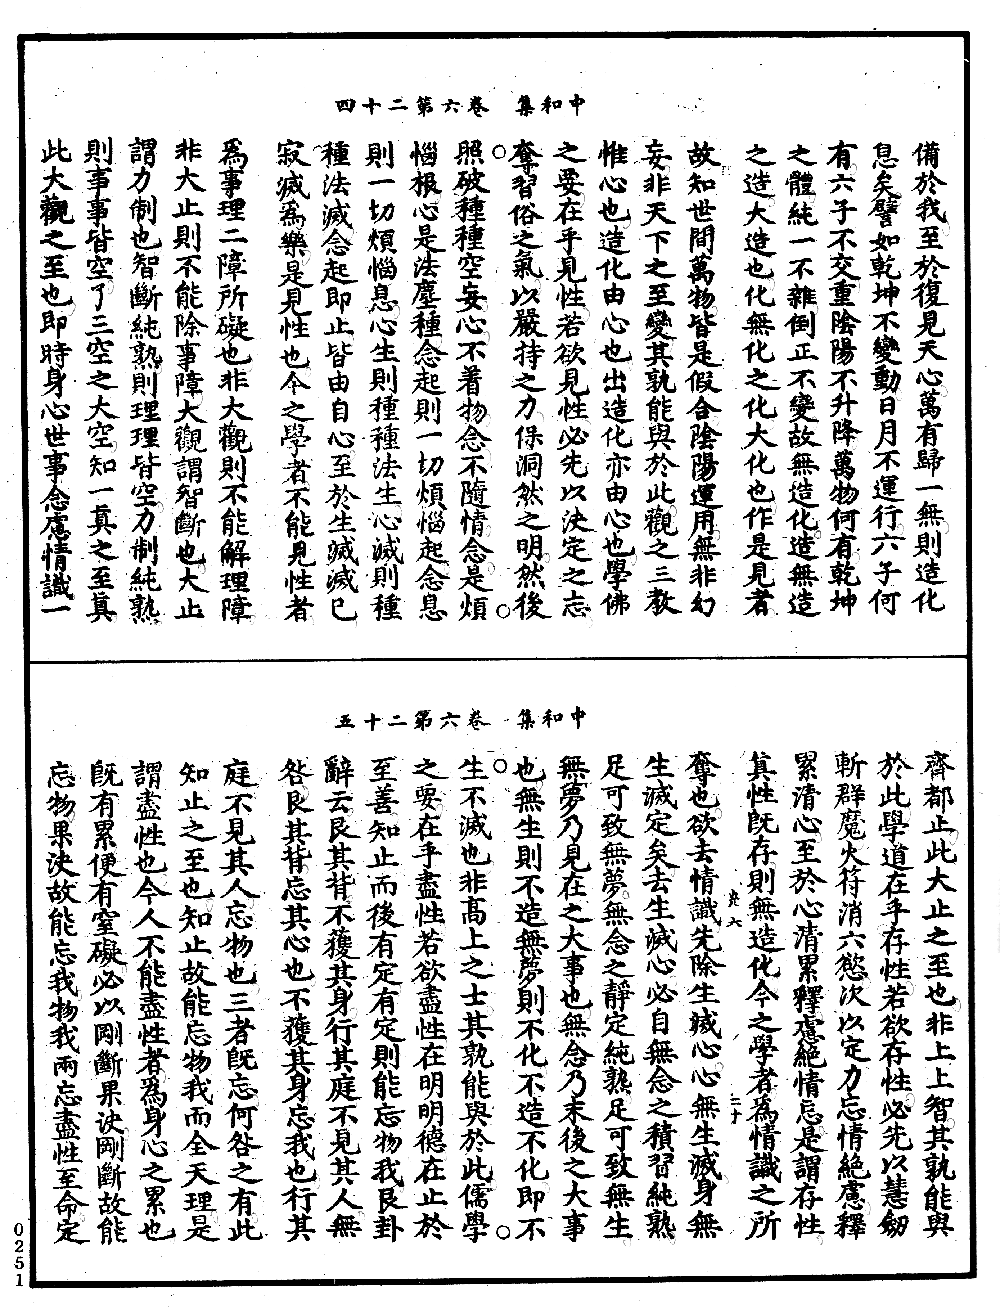 中和集　卷六第二十四
備於我至於復見天心萬有歸一無則造化
息矣譬如乾坤不變動日月不運行六子何
有六子不交重陰陽不升降萬物何有乾坤
之體純一不雜倒正不變故無造化造無造
之造大造也化無化之化大化也作是見者
故知世間萬物皆是假合陰陽運用無非幻
妄非天下之至變其孰能與於此觀之三教
惟心也造化由心也出造化亦由心也學佛
之要在乎見性若欲見性必先以決定之忘
奪習俗之氣以嚴持之力保洞然之明然後
照破種種空妄心不着物念不隨情念是煩
惱根心是法塵種念起則一切煩惱起念息
則一切煩惱息心生則種種法生心滅則種
種法滅念起即止皆由自心至於生滅滅已
寂滅爲樂是見性也今之學者不能見性者
爲事理二障所礙也非大觀則不能解理障
非大止則不能除事障大觀謂智斷也大止
謂力制也智斷純熟則理理皆空力制純熟
則事事皆空了三空之大空知一真之至真
此大觀之至也即時身心世事念慮情識一
中和集　卷六第二十五
齊都止此大止之至也非上上智其孰能與
於此學道在乎存性若欲存性必先以慧劒
斬群魔火符消六慾次以定力忘情絕慮釋
累清心至於心清累釋慮絕情忘是謂存性
其性旣存則無造化今之學者爲情識之所
奪也欲去情識先除生滅心心無生滅身無
生滅定矣去生滅心必自無念之積習純熟
足可致無夢無念之靜定純熟足可致無生
無夢乃見在之大事也無念乃末後之大事
也無生則不造無夢則不化不造不化即不
生不滅也非高上之士其孰能與於此儒學
之要在乎盡性若欲盡性在明明德在止於
至善知止而後有定有定則能忘物我艮卦
辭云艮其背不獲其身行其庭不見其人無
咎艮其背忘其心也不獲其身忘我也行其
庭不見其人忘物也三者旣忘何咎之有此
知止之至也知止故能忘物我而全天理是
謂盡性也今人不能盡性者爲身心之累也
旣有累便有窒礙必以剛斷果決剛斷故能
忘物果決故能忘我物我兩忘盡性至命定
0251